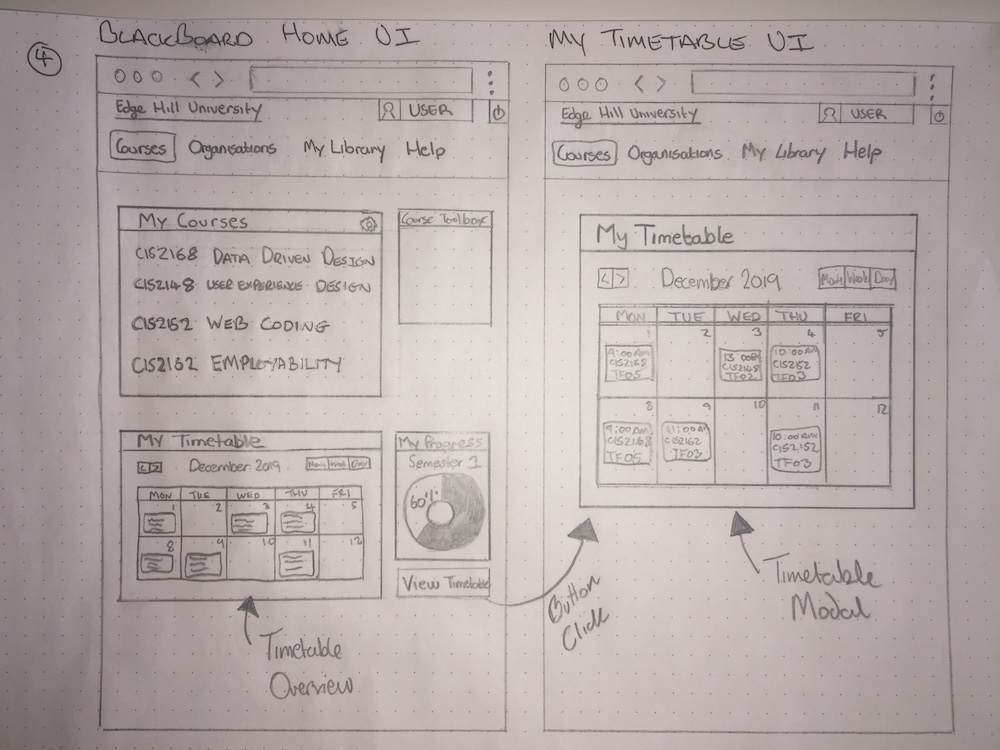 4
BLACKBOARD HOME UI
Edge Hill University
USER
Courses Organisations My Library Help
My Courses
CIS2168 DATA DRIVEN DESIGN
CIS2148 USER EXPERIENCE DESIGN
CIS2152 WEB CODING
CIS2162 EMPLOYABILITY
Course Toolbox
My Timetable
< > December 2019 Week Day
MON TUE WED THU FRI
1 2 3 4 5
8 9 10 11 12
My Progress
Semester 1
60%
View Timetable
Timetable
Overview
Button
Click
MY TIMETABLE UI
Edge Hill University
USER
Courses Organisations My Library Help
My Timetable
< > December 2019 Week Day
MON TUE WED THU FRI
1 2 3 4 5
9:00AM 13:00 10:00AM
CIS2168 CIS2148 CIS2152
TF05 TF02 TF03
8 9 10 11 12
9:00AM 11:00AM 10:00AM
CIS2168 CIS2162 CIS2152
TF05 TF03 TF03
Timetable
Modal